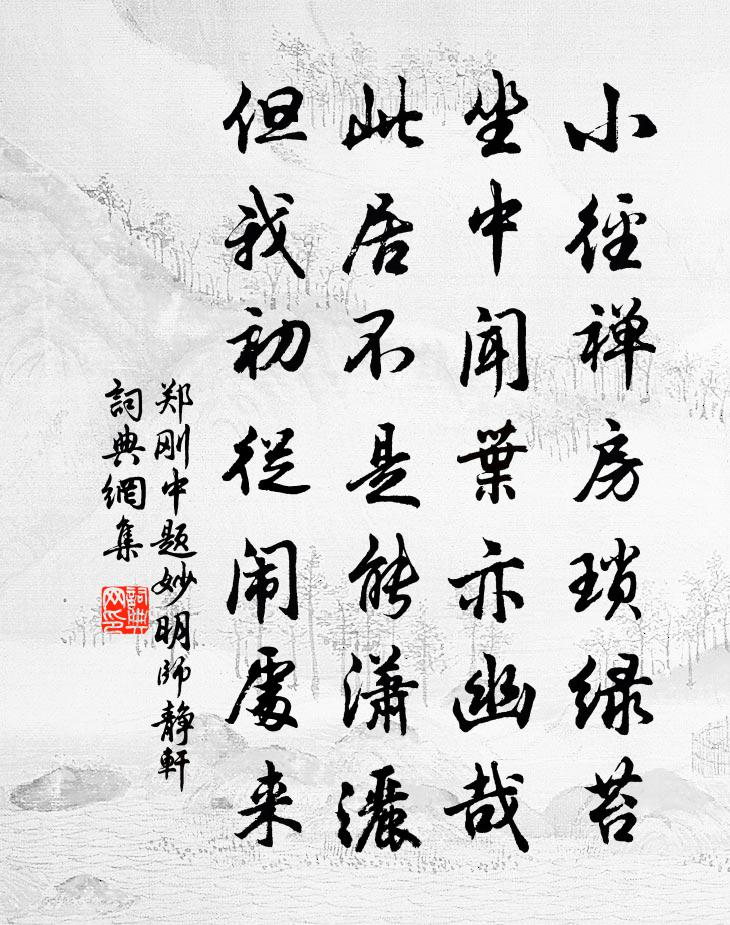 小徑禅房瑣绿苔
坐中闻葉亦幽哉
此居不是能潇灑
但我初從闹處来
郑刚中题妙明师静軒
詞典網集
詞典网印